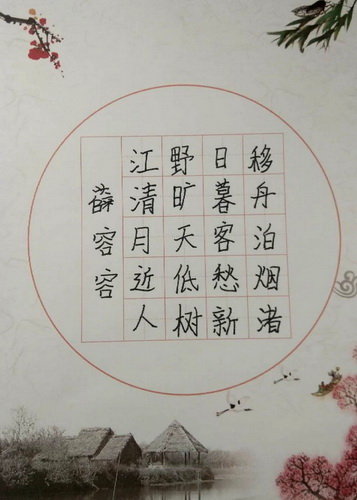 移舟泊烟渚
日暮客愁新
野旷天低树
江清月近人
薛容容